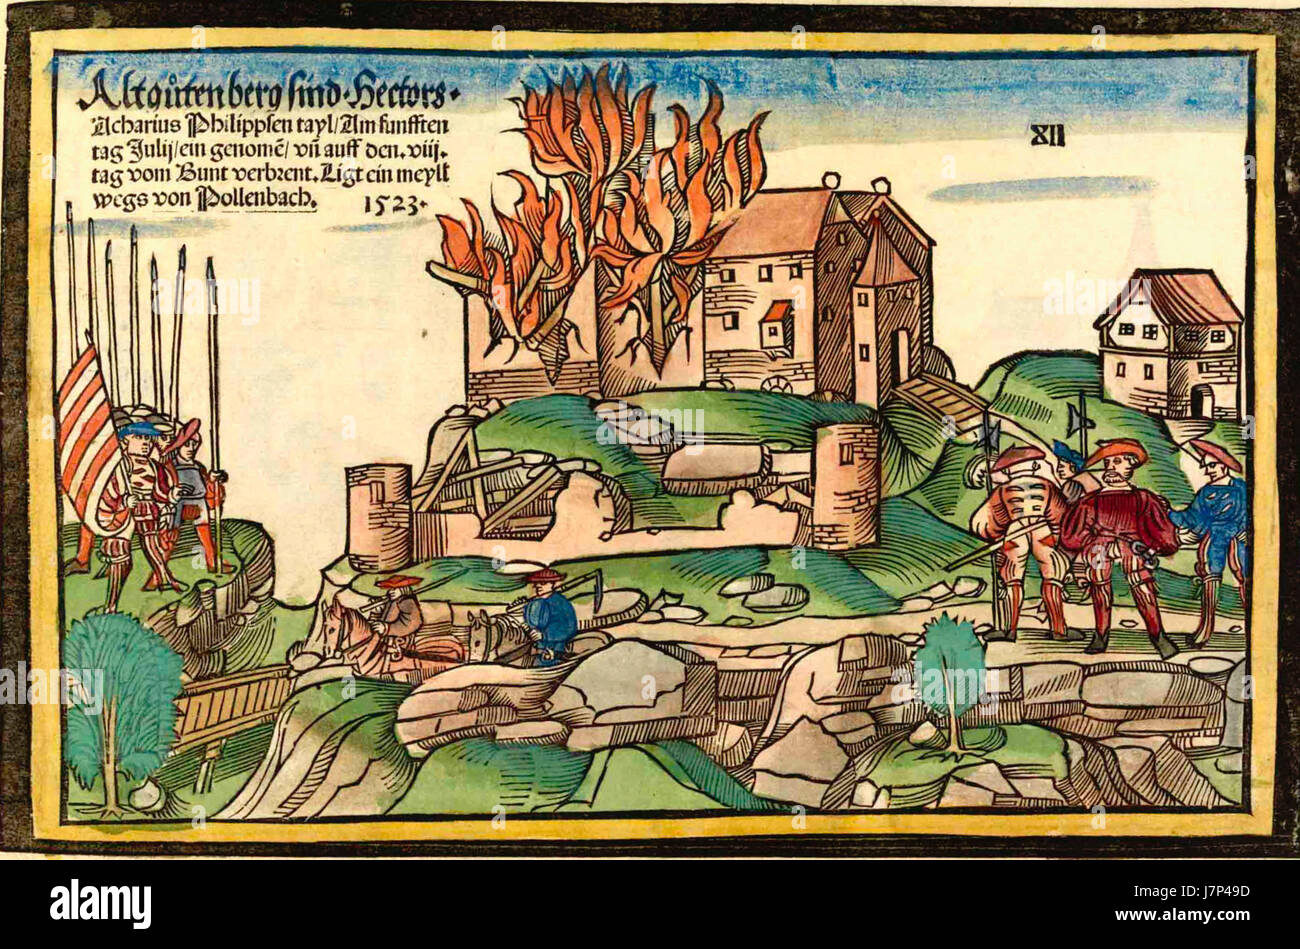 Altgůtenberg sind·Hectors·
Acharius Philippsen tayl/Am funfften
tag Julij/ein genomẽ/ vñ auff den.viij.
tag vom Bunt verbrent.Ligt ein meyll
wegs von Pollenbach. 1523·
XII
a
alamy
alamy stock photo
J7P49D
www.alamy.com